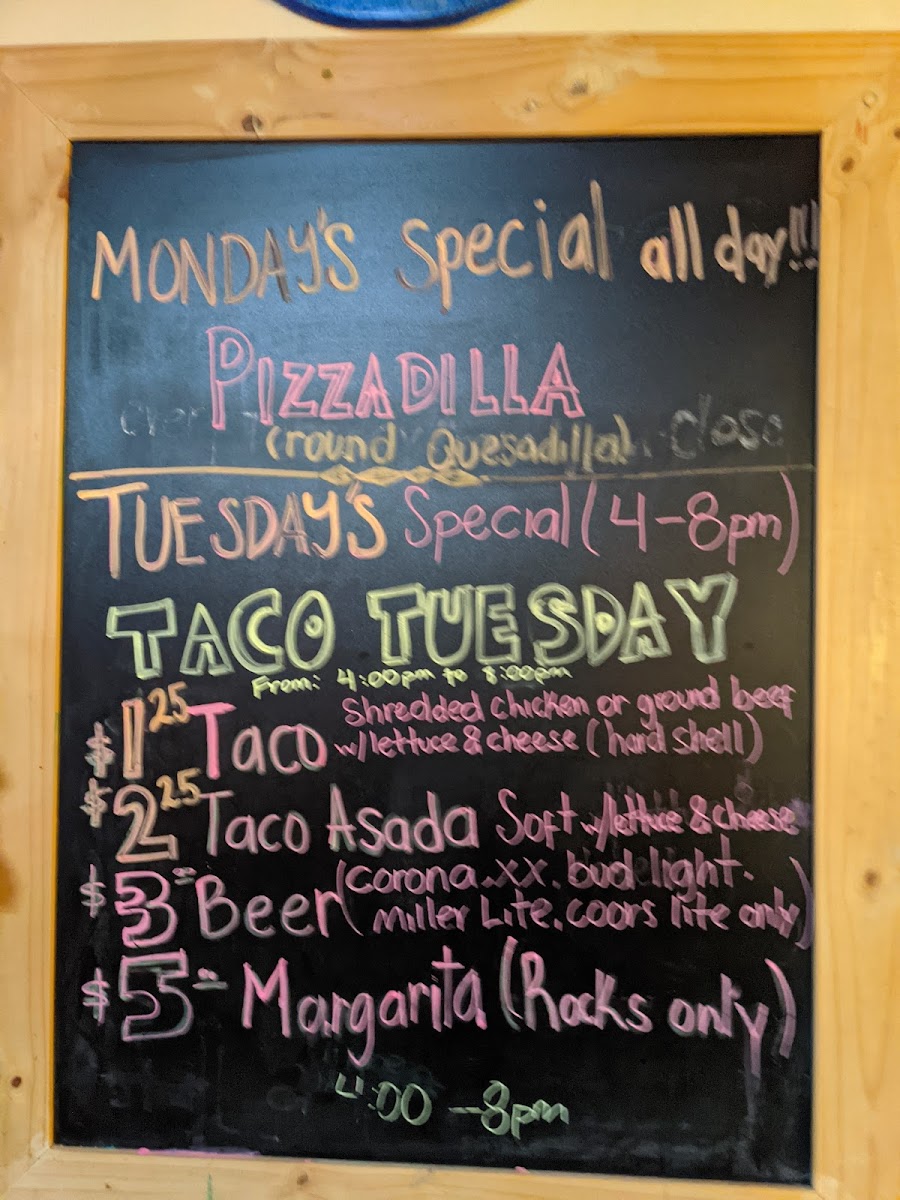 MONDAY'S Special all day!!!
PIZZADILLA
(round Quesadilla) close
TUESDAY'S Special (4-8pm)
TACO TUESDAY
From: 4:00pm to 8:00pm
$1.25 Taco Shredded chicken or ground beef
w/lettuce & cheese (hard shell)
$2.25 Taco Asada Soft w/lettuce & cheese
$3= Beer (corona.xx.bud light.
Miller Lite.coors lite only)
$5= Margarita (Rocks only)
4:00-8pm